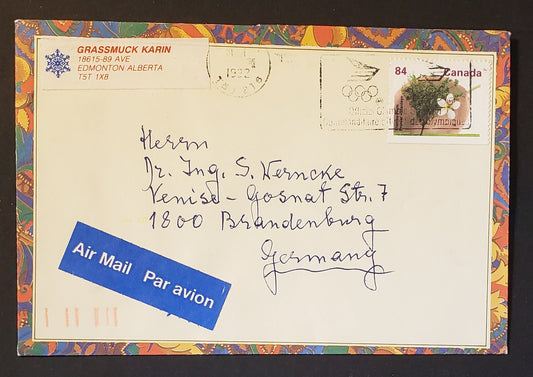 GRASSMUCK KARIN
18615-89 AVE
EDMONTON ALBERTA
T5T 1X8
1992
84 Canada
Herrn
Dr. Ing. S. Werncke
Venise - Gosnat Str. 7
1800 Brandenburg
Germany
Air Mail Par avion